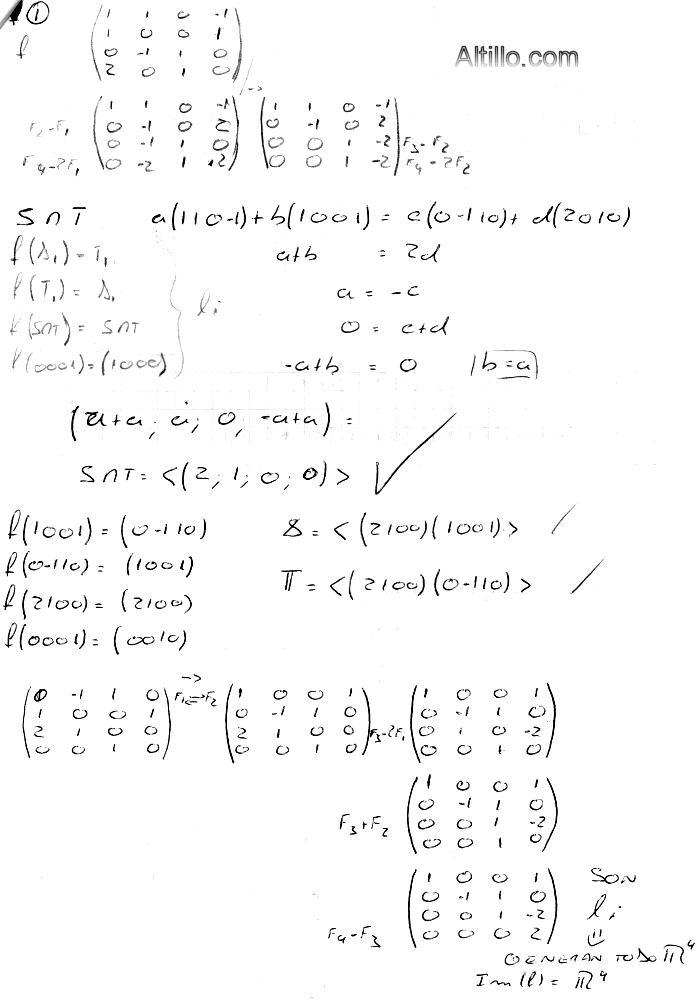 ①
Altillo.com
f
1 1 0 -1
1 0 0 1
0 -1 1 0
2 0 1 0
→
F₂-F₁
F₄-2F₁
1 1 0 -1
0 -1 0 2
0 -1 1 0
0 -2 1 +2
1 1 0 -1
0 -1 0 2
0 0 1 -2 F₃-F₂
0 0 1 -2 F₄-2F₂
S∩T a(110-1)+b(1001) = c(0-110)+d(2010)
f(s₁)=T₁
f(T₁)=s₁
f(S∩T)=S∩T
f(0001)=(1000)
li
a+b = 2d
a = -c
0 = c+d
-a+b = 0 |b=a|
(a+a; a; 0; -a+a) =
S∩T = <(2; 1; 0; 0)>
f(1001) = (0-110)
f(0-110) = (1001)
f(2100) = (2100)
f(0001) = (0010)
S = <(2100)(1001)>
T = <(2100)(0-110)>
0 -1 1 0
1 0 0 1
2 1 0 0
0 0 1 0
→
F₁⇄F₂
1 0 0 1
0 -1 1 0
2 1 0 0
0 0 1 0
F₃-2F₁
1 0 0 1
0 -1 1 0
0 1 0 -2
0 0 1 0
F₃+F₂
1 0 0 1
0 -1 1 0
0 0 1 -2
0 0 1 0
F₄-F₃
1 0 0 1
0 -1 1 0
0 0 1 -2
0 0 0 2
SON
li
GENERAN TODO ℝ⁴
Im(f) = ℝ⁴